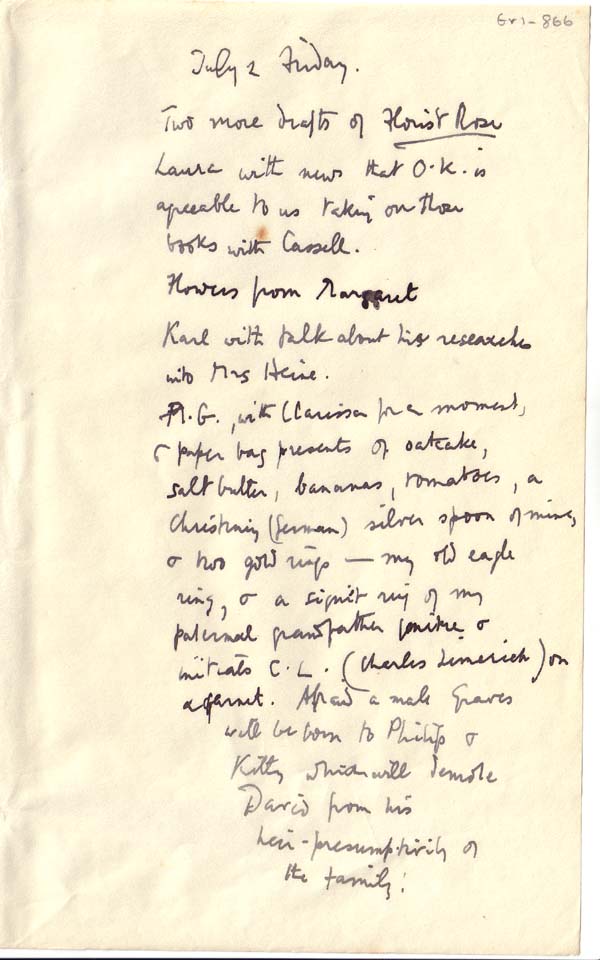 Gr1-866
July 2 Friday.
Two more drafts of Florist Rose
Laura with news that O.K. is
agreeable to us taking on those
books with Cassell.
Flowers from Margaret
Karl with talk about his researches
into Mrs Heine.
A.G., with Clarissa for a moment,
& paper bag presents of oatcake,
salt butter, bananas, tomatoes, a
Christning (German) silver spoon of mine,
& two gold rings — my old eagle
ring, & a signet ring of my
paternal grandfather &
initials C.L. (Charles Limerick) on
a garnet. Afraid a male Graves
will be born to Philip &
Kitty which will demote
David from his
heir-presumptivity of
the family!